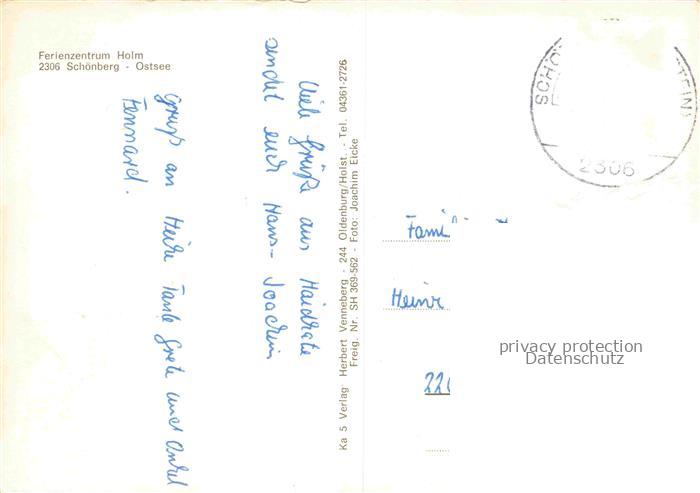 Ferienzentrum Holm
2306 Schönberg - Ostsee
Viele Grüße aus
sendet euch Hans-Joachim
Gruß an Heike Tante Grete und Onkel
Ka 5 Verlag Herbert Venneberg - 244 Oldenburg/Holst. - Tel. 04361-2726
Freig. Nr. SH 369-562 - Foto: Joachim Eicke
SCHÖ
STEIN
2306
Fami
Heinr
22
privacy protection
Datenschutz